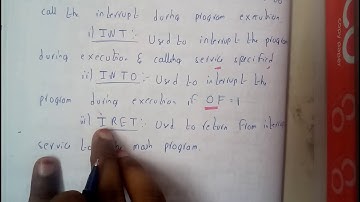 call the interrupt during program execution.
i) INT :- Used to interrupt the program
during execution & calling service specified
ii) INTO :- Used to interrupt the
program during execution if OF = 1
iii) IRET :- Used to return from
service to main program.